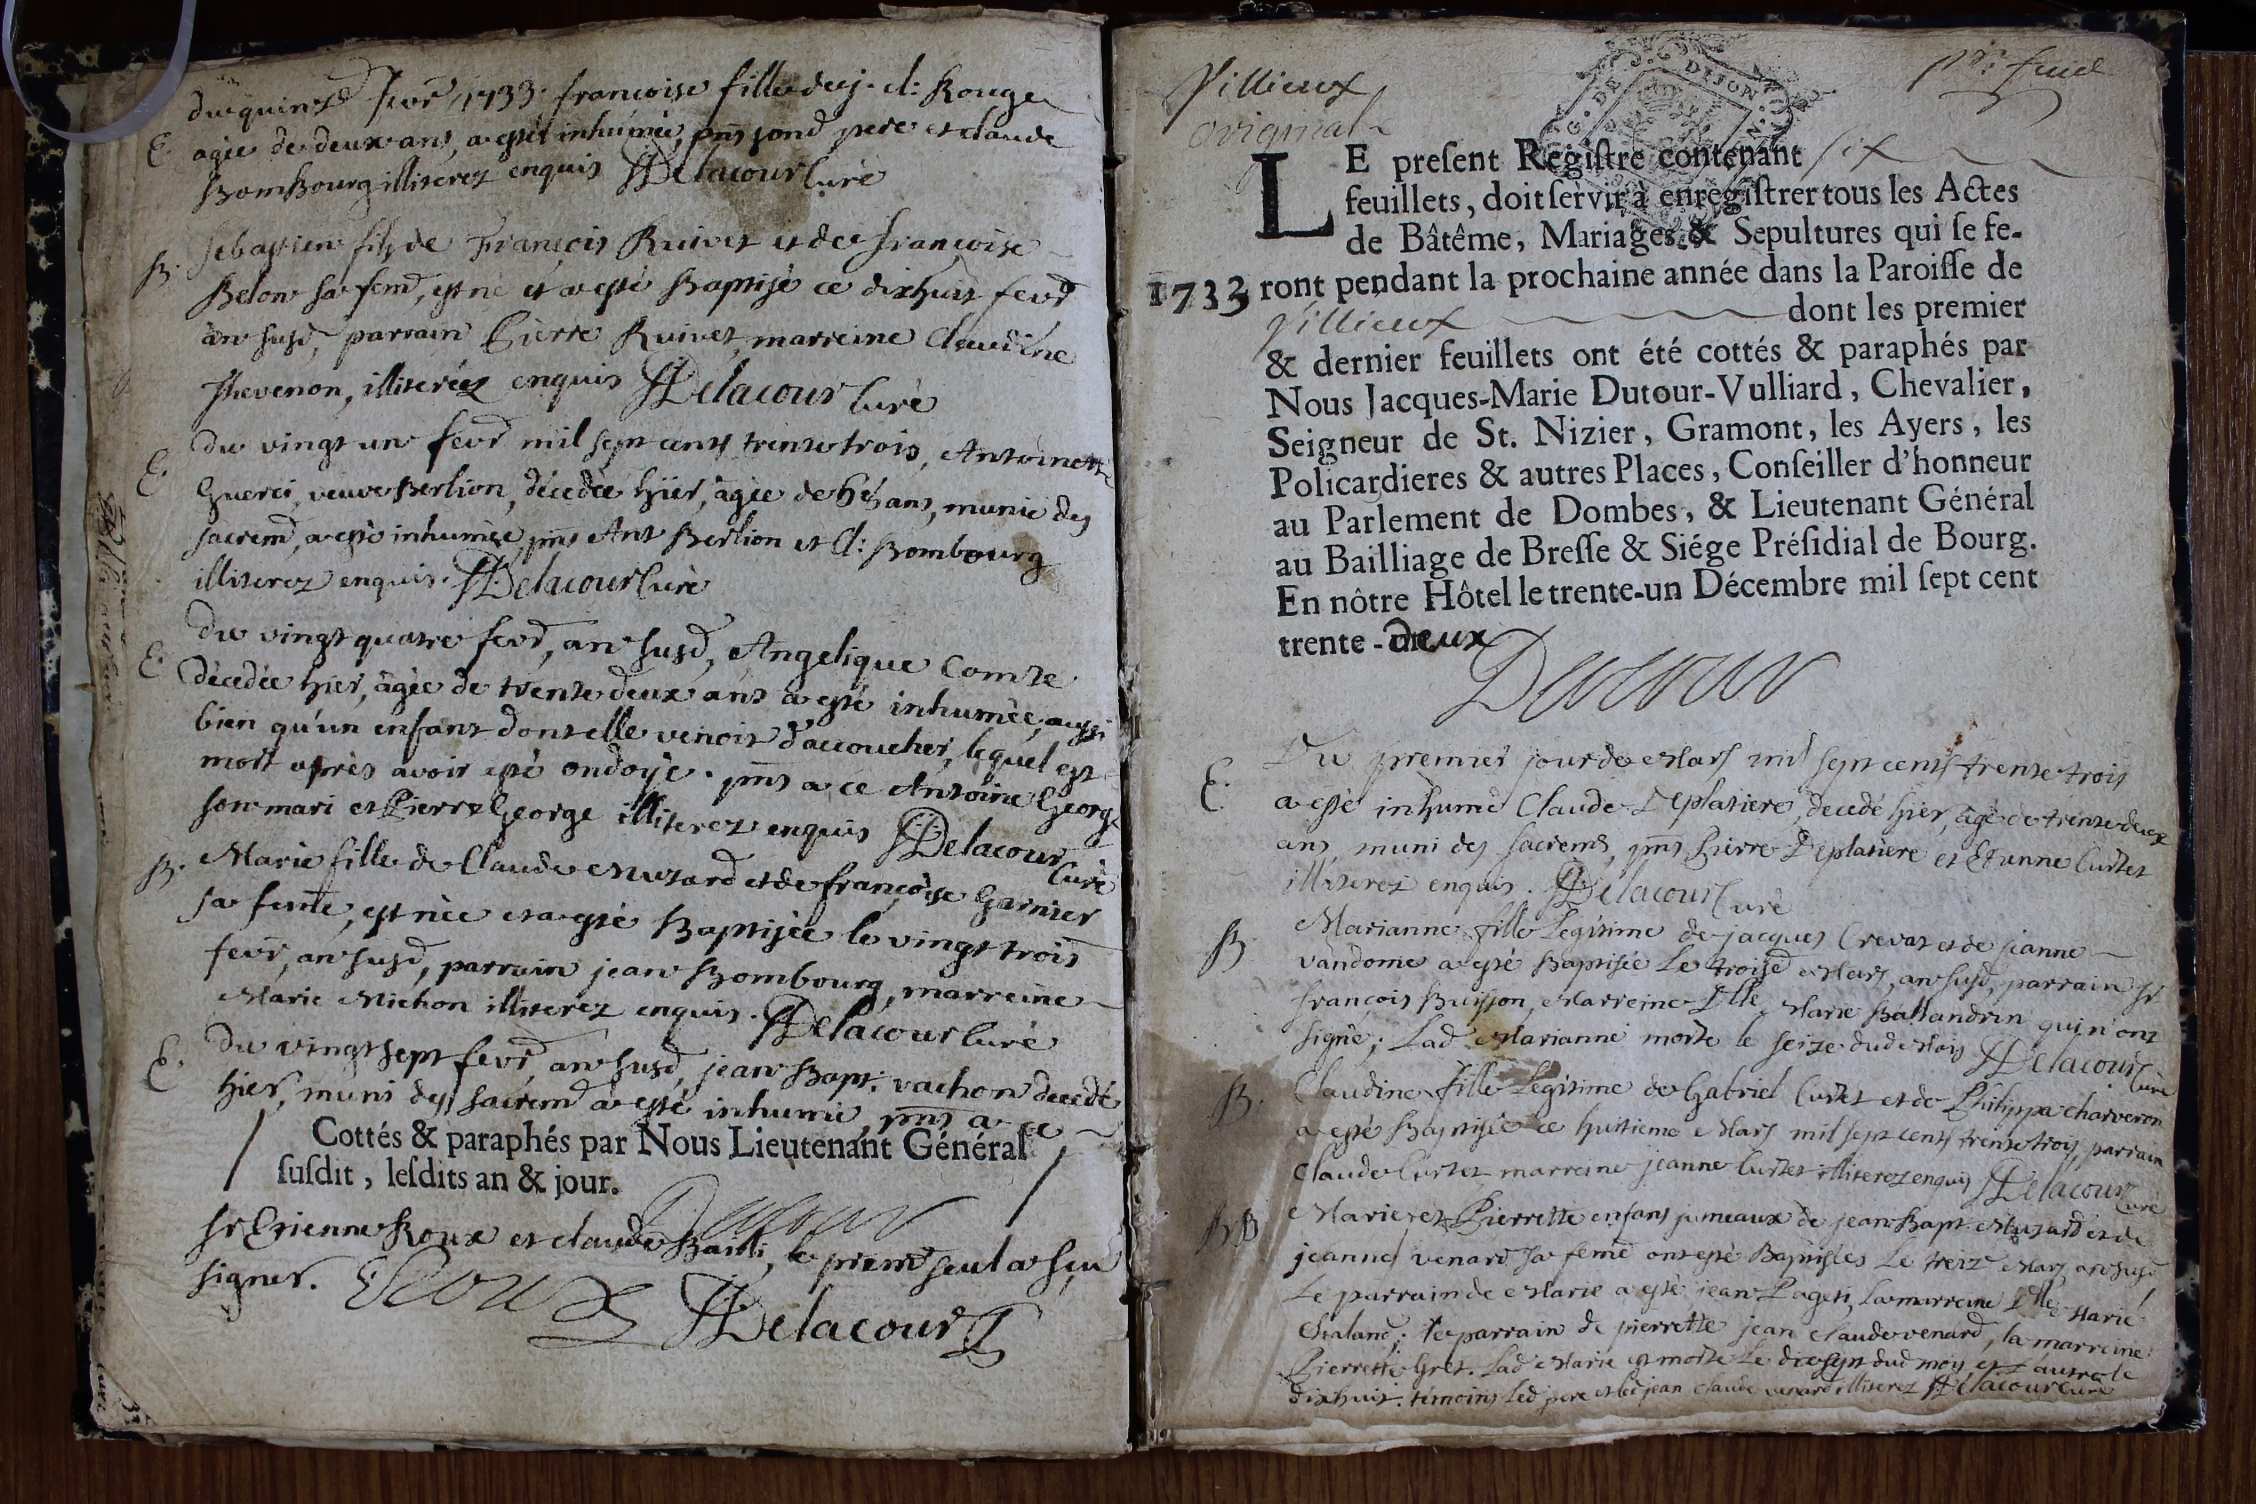 du quinze fevr 1733. francoise fille de j. cl: Rouge
E. agée de deux ans, a esté inhumée, pnts sond pere et claude
Bombourg illiterez enquis JDelacour Curé
B. sebastien fils de François Ruivet et de françoise
Belon sa feme, est né et a esté Baptisé ce dixhuit fevr
an susd, parrain Pierre Ruivet, marreine Claudine
Thevenon, illiterez enquis JDelacour Curé
E. Du vingt un fevr mil sept cents trente trois, Antoinette
Guerci, veuve Berlion, décedée hier, âgée de ans, munie des
sacrem, a esté inhumée, pnts Ant Berlion et Cl: Bombourg
illiterez enquis. JDelacour Curé
E. Du vingt quatre fevr, an susd, Angelique Comte
décedée hier, âgée de trente deux ans a esté inhumée, aussi
bien qu'un enfant dont elle venoit d'accoucher, lequel est
mort après avoir esté ondoyé. pnts a ce Antoine George
son mari et Pierre George illiterez enquis JDelacour Curé
B. Marie fille de Claude Muzard et de françoise Garnier
sa feme, est née et a esté Baptisée le vingt trois
fevr, an susd, parrain jean Bombourg, marreine
Marie Michon illiterez enquis. JDelacour Curé
E. Du vingt sept fevr an susd, jean Bapt. vachon decedé
hier, muni des sacrem a esté inhumé, pnts a ce
Cottés & paraphés par Nous Lieutenant Général
susdit, lesdits an & jour.
Dutour
sr Etienne Roux et claude Bailli, le premr seul a sçu
signer. E Roux JDelacour
Villieux
original
pr. feuil
LE present Registre contenant six
feuillets, doit servir à enregistrer tous les Actes
de Bâtême, Mariages & Sepultures qui se fe-
1733 ront pendant la prochaine année dans la Paroisse de
Villieux dont les premier
& dernier feuillets ont été cottés & paraphés par
Nous Jacques-Marie Dutour-Vulliard, Chevalier,
Seigneur de St. Nizier, Gramont, les Ayers, les
Policardieres & autres Places, Conseiller d'honneur
au Parlement de Dombes, & Lieutenant Général
au Bailliage de Bresse & Siége Présidial de Bourg.
En nôtre Hôtel le trente-un Décembre mil sept cent
trente-deux
Dutour
E. Du premier jour de Mars mil sept cents trente trois
a esté inhumé Claude Deplatiere, decedé hier, âgé de trente deux
ans, muni des sacrems, pnts Pierre Deplatiere et Etienne Curtet
illiterez enquis. JDelacour Curé
B. Marianne fille Legitime de jacques Crevat et de jeanne
vandome a esté Baptisée Le troise Mars, an susd, parrain sr
françois Buisson, Marreine Dlle Marie Ballandrin qui n'ont
signé; Lad Marianne morte le seize dud Mois JDelacour Curé
B. Claudine fille Legitime de Gabriel Curtet et de Philippa charveron
a esté Baptisée ce huitieme Mars mil sept cents trente trois, parrain
Claude Curtet marreine jeanne Curtet illiterez enquis JDelacour Curé
BB Marie et Pierrette enfans jumeaux de jean Bapt. Muzard et de
jeanne venard sa feme ont esté Baptisées Le treize Mars an susd,
Le parrain de Marie a esté jean Lageti, La marreine Dlle Marie
Chaland; le parrain de pierrette jean claude venard, la marreine
Pierrette Gret. Lad Marie est morte Le dixsept dud mois et l'autre le
dixhuit. témoins led pere et led jean claude venard illiterez JDelacour Curé